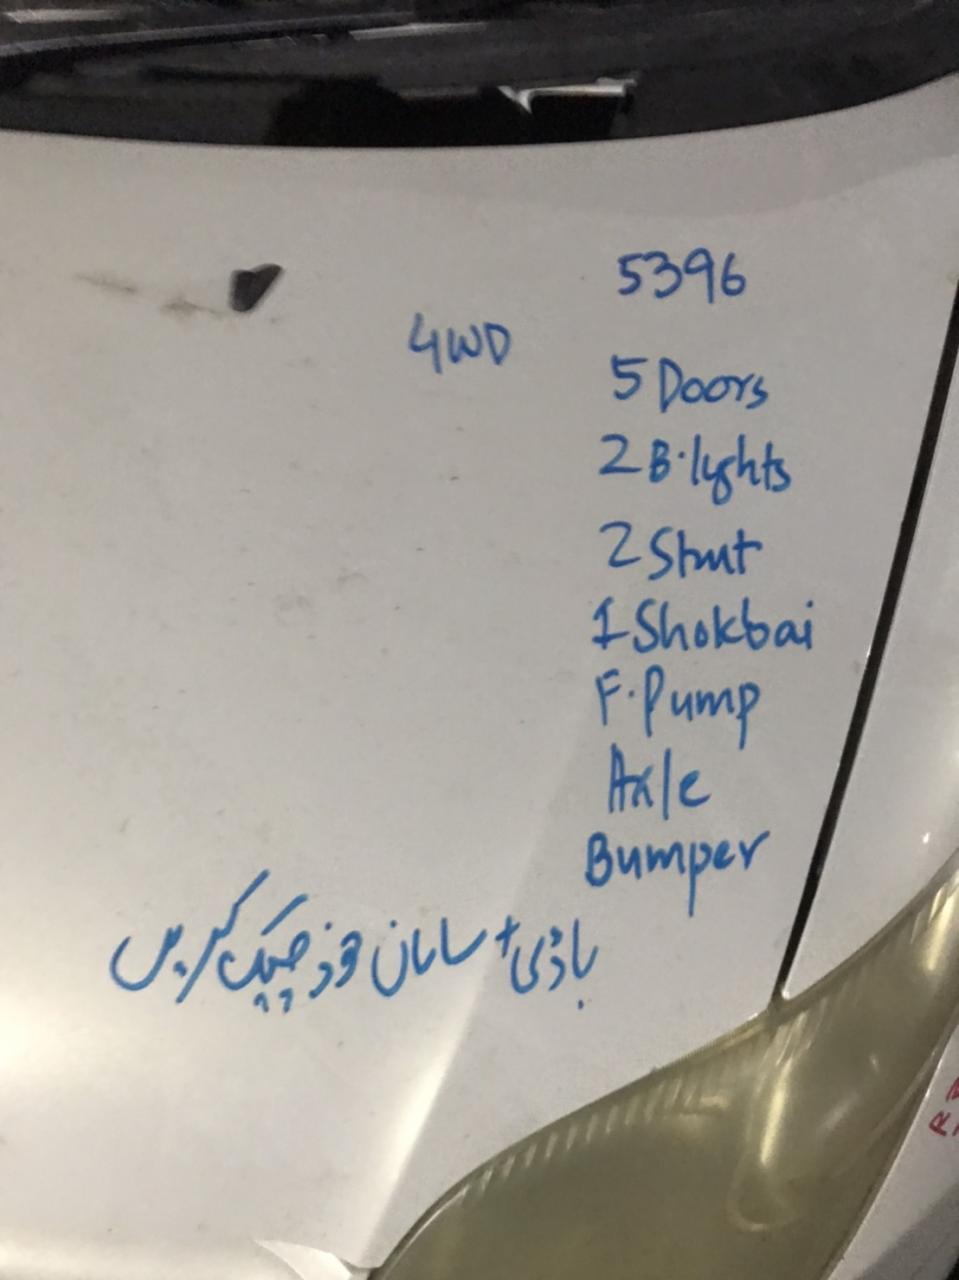 5396
4WD
5 Doors
2 B.lights
2 Strut
1 Shokbai
F.Pump
Axle
Bumper
باڈی + سامان خود چیک کریں
R